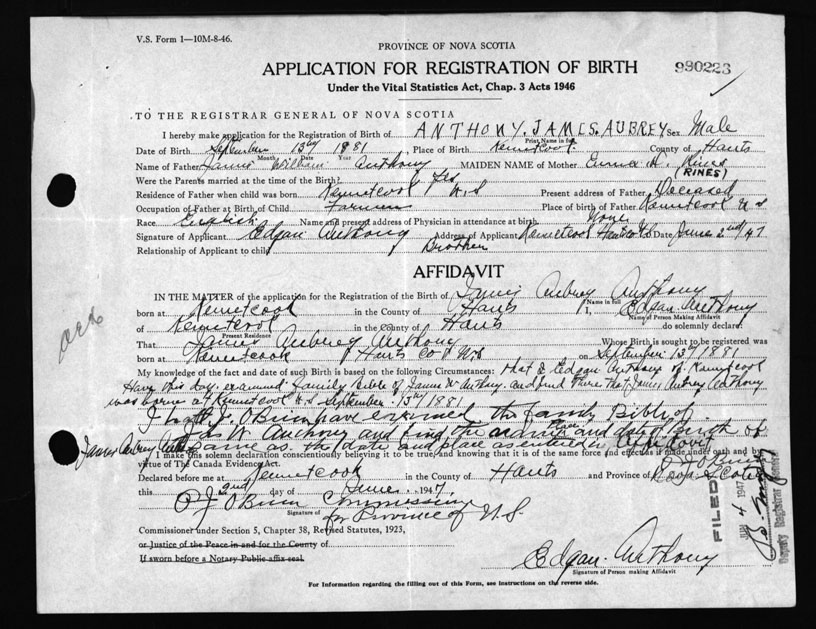 V.S. Form 1—10M-8-46.
PROVINCE OF NOVA SCOTIA
APPLICATION FOR REGISTRATION OF BIRTH
990223
Under the Vital Statistics Act, Chap. 3 Acts 1946
TO THE REGISTRAR GENERAL OF NOVA SCOTIA
I hereby make application for the Registration of Birth of ANTHONY. JAMES. AUBREY Sex Male
Print Name in full
Date of Birth September 13th 1881, Place of Birth Kennetcook County of Hants
Month Date Year
Name of Father James William Anthony MAIDEN NAME of Mother Emma A. Rines
(RINES)
Were the Parents married at the time of the Birth? Yes
Residence of Father when child was born Kennetcook N.S Present address of Father Deceased
Occupation of Father at Birth of Child Farmer Place of birth of Father Kennetcook N S
Race English Name and present address of Physician in attendance at birth None
Signature of Applicant Edgar Anthony Address of Applicant Kennetcook Hants Co NS Date June 2nd/47
Relationship of Applicant to child Brother
AFFIDAVIT
IN THE MATTER of the application for the Registration of the Birth of James Aubrey Anthony
Name in full
born at Kennetcook in the County of Hants I, Edgar Anthony
Name of Person Making Affidavit
of Kennetcook in the County of Hants do solemnly declare:
Present Residence
That James Aubrey Anthony Whose Birth is sought to be registered was
born at Kennetcook Hants Co N.S on September 13th/1881
My knowledge of the fact and date of such Birth is based on the following Circumstances: that I Edgar Anthony of Kennetcook
Have this day examined family Bible of James W Anthony and find there that James Aubrey Anthony
was born at Kennetcook N.S September 13th/1881
I P.J. O'Brien have examined the family Bible of
Anthony and find the place and date of Birth of
James Aubrey Anthony same as the date and place as entered in
I make this solemn declaration conscientiously believing it to be true, and knowing that it is of the same force and effect as if made under oath and by
virtue of The Canada Evidence Act.
P J O'Brien
Declared before me at Kennetcook in the County of Hants and Province of Nova Scotia
this 2nd day of June 1947.
P J O'Brien Commissioner
Signature of
for Province of N.S.
Commissioner under Section 5, Chapter 38, Revised Statutes, 1923,
or Justice of the Peace in and for the County of
If sworn before a Notary Public affix seal.
Edgar Anthony
Signature of Person making Affidavit
For Information regarding the filling out of this Form, see instructions on the reverse side.
FILED
JUN 4 1947
Deputy Registrar General